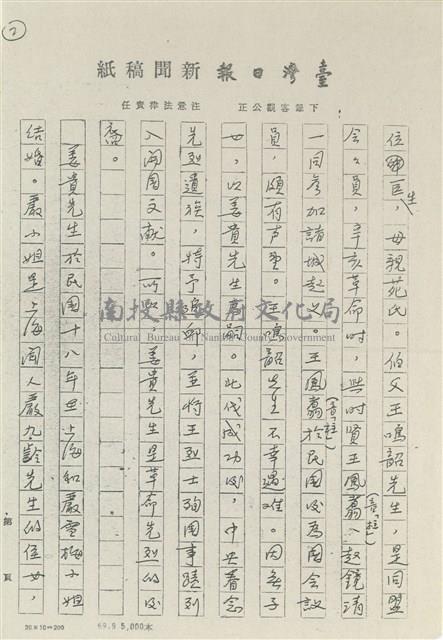 2
臺灣日報新聞稿紙
下筆客觀公正　注意法律責任
位卿臣，生母親苑氏。伯父王鳴韶先生，是同盟
會會員，辛亥革命時，與時賢王鳳翥(音「拄」)、趙鏡清
一同參加諸城起義。王鳳翥(音「拄」)於民國後為國會議
員，頗有聲望。王鳴韶先生不幸遇難。因無子
女，以姜貴先生為嗣。北伐成功後，中央眷念
先烈遺族，特予撫卹，並將王烈士殉國事蹟列
入開國文獻。所以，姜貴先生是革命先烈的後
裔。
姜貴先生於民國十八年與上海和嚴雪梅小姐
結婚。嚴小姐是上海聞人嚴九齡先生的侄女，
南投縣政府文化局
Cultural Bureau of Nantou County Government
第　頁
20×10=200
69.9 5,000本